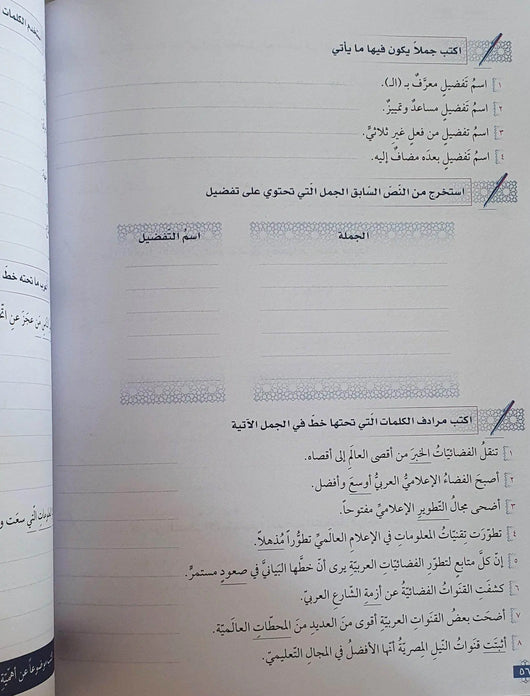 اكتب جملاً يكون فيها ما يأتي
١ اسمُ تَفضيلٍ معرَّفٌ بـ (الـ).
٢ اسمُ تَفضيلٍ مساعدٌ وتمييزٌ.
٣ اسمُ تفضيلٍ من فعلٍ غيرِ ثلاثيٍّ.
٤ اسمُ تَفضيلٍ بعدَه مضافٌ إليه.
استخرج من النّصّ السّابق الجمل الّتي تحتوي على تفضيل
الجملة
اسمُ التّفضيل
اكتب مرادف الكلمات الّتي تحتها خطّ في الجمل الآتية
١ تنقلُ الفضائيّاتُ الخبرَ من أقصى العالَمِ إلى أقصاه.
٢ أصبحَ الفضاءُ الإعلاميُّ العربيُّ أوسعَ وأفضل.
٣ أضحى مجالُ التّطويرِ الإعلاميِّ مفتوحاً.
٤ تطوّرَت تقنيّاتُ المعلوماتِ في الإعلامِ العالَميِّ تطوُّراً مُذهلاً.
٥ إنّ كلَّ متابعٍ لتطوّرِ الفضائيّاتِ العربيّةِ يرى أنّ خطَّها البَيانيَّ في صعودٍ مستمرٍّ.
٦ كشفَت القنواتُ الفضائيّةُ عن أزمةِ الشّارعِ العربيّ.
٧ أضحَت بعضُ القنواتِ العربيّةِ أقوى منَ العديدِ منَ المحطّاتِ العالَميّة.
٨ أثبتَت قنواتُ النّيلِ المِصريّةُ أنّها الأفضلُ في المجالِ التعليميِّ.
٥٦
ما تحته خطّ
عَجَزَ عنِ
الّتي سعَت
عن أهمّيّة